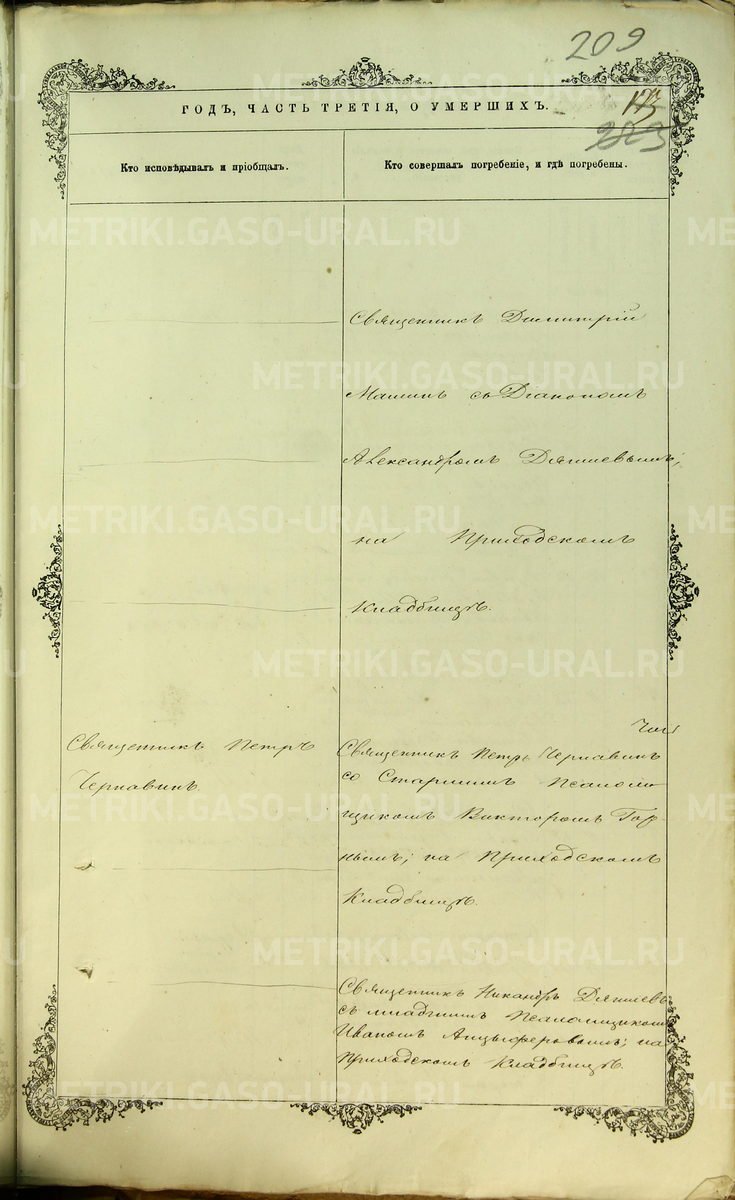 209
ГОДЪ, ЧАСТЬ ТРЕТІЯ, О УМЕРШИХЪ.
223
Кто исповѣдывалъ и пріобщалъ.
Кто совершалъ погребеніе, и гдѣ погребены.
Священникъ Димитрій
Машинъ съ Діакономъ
Александромъ Дягилевымъ;
на Приходскомъ
Кладбищѣ.
Священникъ Петръ
Чернавинъ.
Священникъ Петръ Чернавинъ
со Старшимъ Псалом-
щикомъ Викторомъ Гор-
нымъ; на Приходскомъ
Кладбищѣ.
Священникъ Никандръ Дягилевъ
съ младшимъ Псаломщикомъ
Иваномъ Анцыферовымъ; на
Приходскомъ Кладбищѣ.
METRIKI.GASO-URAL.RU